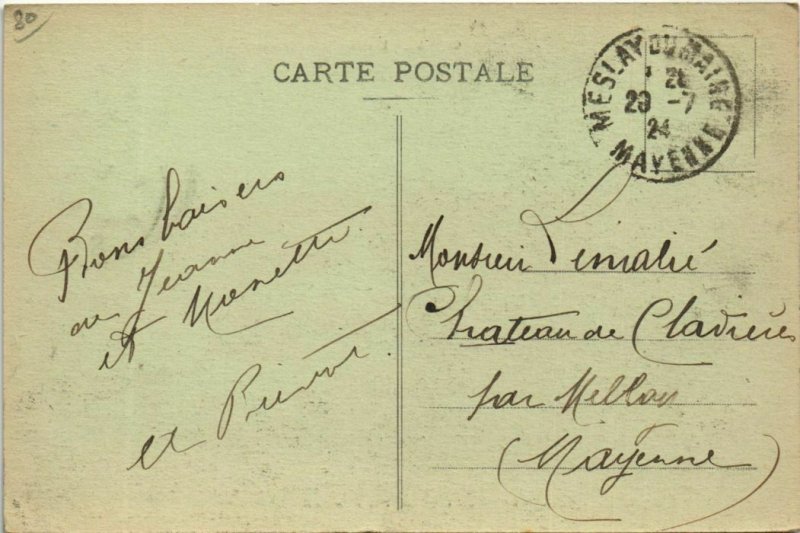 80
CARTE POSTALE
MESLAY DU MAINE
29 -7
24
MAYENNE
Bons baisers
de Jeanne
et Monette
et Pierrot.
Monsieur Limalié
Chateau de Clavières
par Mellay
(Mayenne)